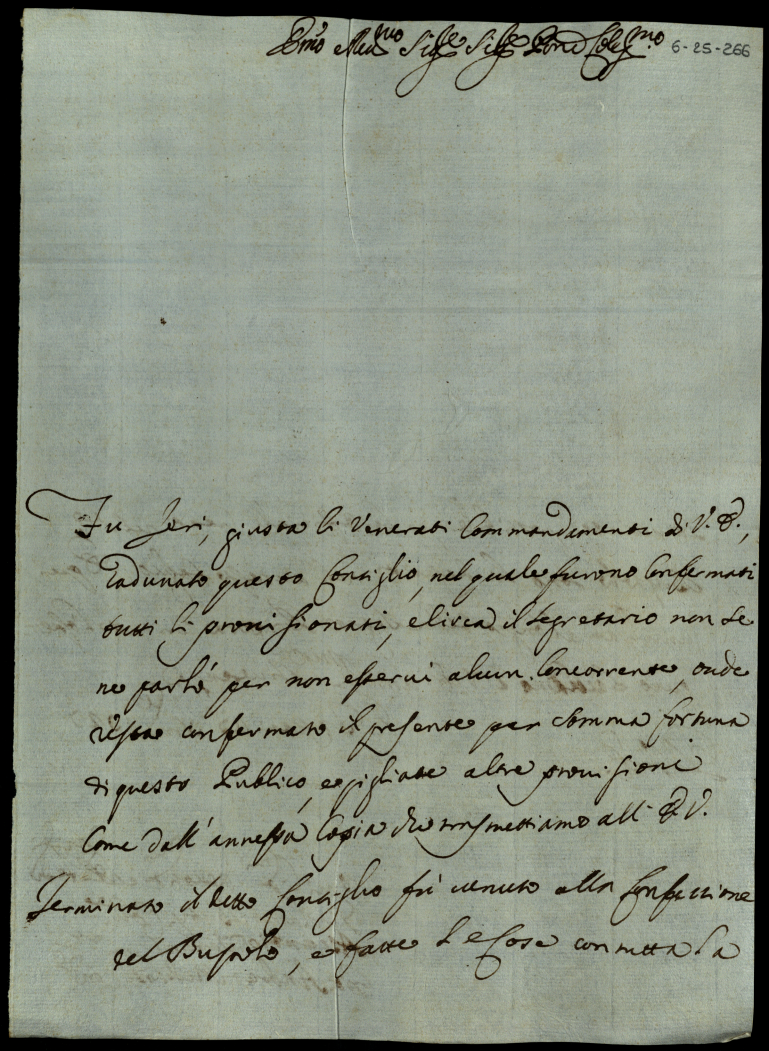 Emo Revmo Sigre Sigre Pron Colmo 6-25-266
Fu Jeri, giusta li Venerati Commandamenti di V. E.,
radunato questo Consiglio, nel quale furono Confermati
tutti li provisionati, e circa il segretario non se
ne parlò per non esservi alcun Concorrente, onde
resta confermato il presente per somma fortuna
di questo Publico, e pigliate altre provisioni
Come dall' annessa Copia che trasmettiamo all' E. V.
Terminato il detto Consiglio fù venuto alla Confezzione
del Busolo, e fatte le Cose con tutta la